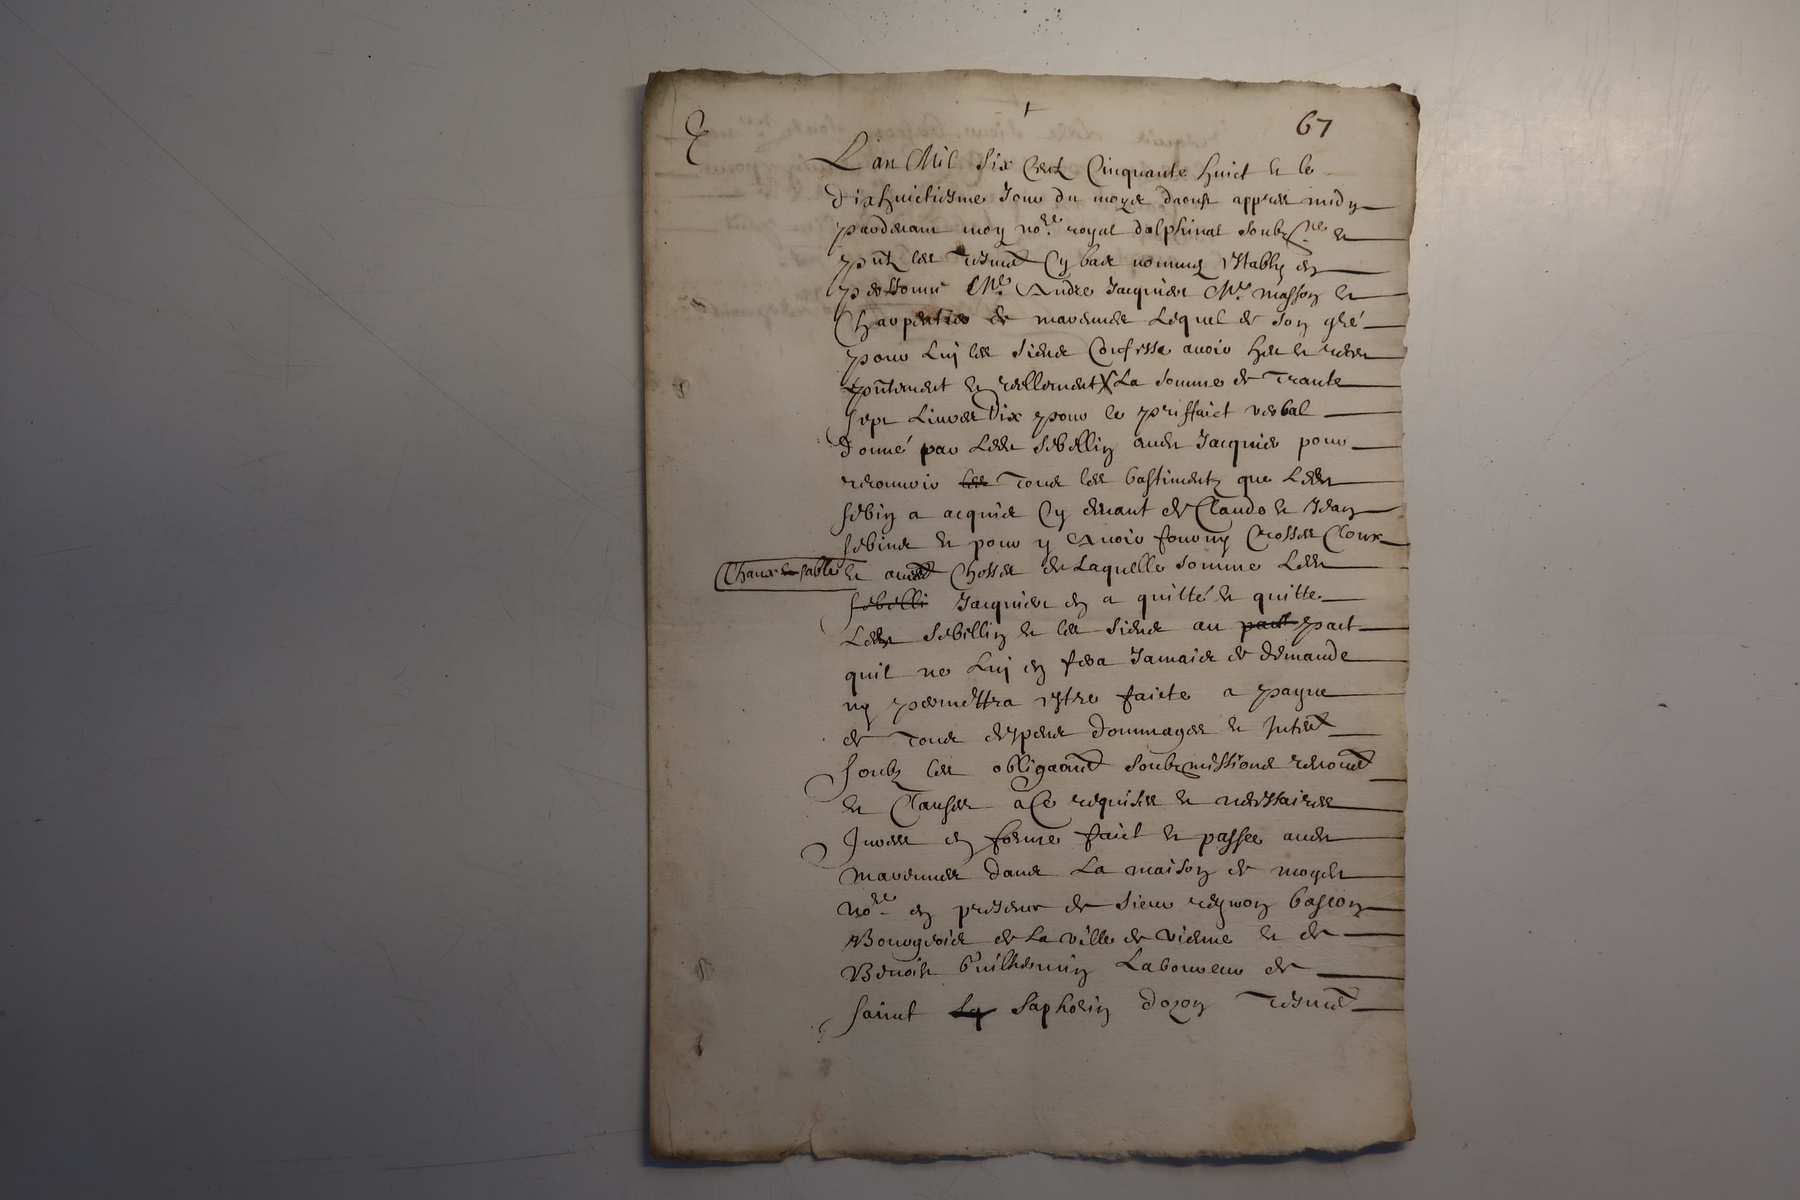 67
L'an Mil Six Centz Cinquante huict & le
dixhuictiesme Jour du moys daoust appres midy
pardevant moy no.re royal dalphinal soubz.ne &
p̃ntz les tesmoᵗ Cy bas nommez Establi en
personne Mᵉ Andre Jacquier Mᵉ masson &
Charpentier de marennes Lequel de son gré
pour Luy les siens Confesse avoir heu & receu
p̃ntement & reellement La somme de trante
sept Livres dix pour le priffaict verbal
donné par Led sebellin aud Jacquier pour
recouvrir les tous les bastimentz que Led
sebin a acquis Cy devant de Claude & Jean
sebins & pour y Avoir fourny Crosses Cloux
Chaux & sable & autᵗ Chosses de Laquelle somme Led
sebelli Jacquier en a quitté & quitte
Led sebillin & les siens au pact pact
quil ne Luy en fera Jamais de demande
ny permettra estre faicte a payne
de tous despens dommages & Interᵗ
soubz les obligaonᵗ soubzmissions renonᵗ
& Clauses a Ce requises & necessaires
Jurees en forme faict & passee aud
marennes dans La maison de moyd
no.re en presence de sieur reymon basson
Bourgeois de La ville de vienne & de
Benoist Guilhermin Laboureur de
sainct saphorin dozon tesmoᵗ